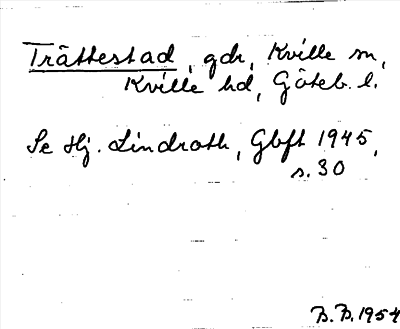 Trättestad, gdr, Kville sn,
Kville hd, Göteb. l.
Se Hj. Lindroth, Gbft 1945,
s. 30
B.B. 1954